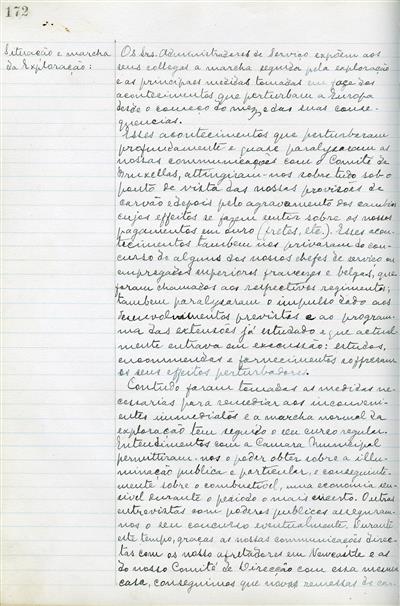 172
Situação e marcha
da Exploração:
Os Srs. Administradores de Serviço expõem aos
seus collegas a marcha seguida pela exploração
e as principaes medidas tomadas em face dos
acontecimentos que perturbam a Europa
desde o começo do mez e das suas conse-
quencias.
Esses acontecimentos que perturbaram
profundamente e quasi paralysaram as
nossas communicações com o Comité de
Bruxellas, attingiram-nos sobretudo sob o
ponto de vista das nossas provisões de
carvão e depois pelo agravamento dos cambios
cujos effeitos se fazem sentir sobre os nossos
pagamentos em ouro (fretes, etc.). Esses acon-
tecimentos tambem nos privaram do con-
curso de alguns dos nossos chefes de serviço ou
empregados superiores francezes e belgas, que
foram chamados aos respectivos regimentos;
tambem paralysaram o impulso dado aos
desenvolvimentos previstos e ao program-
ma das extensões já estudado e que actual-
mente entrava em execussão: estudos,
encommendas e fornecimentos soffreram
os seus effeitos perturbadores.
Comtudo foram tomadas as medidas ne-
cessarias para remediar aos inconveni-
entes immediatos e a marcha normal da
exploração tem seguido o seu curso regular.
Entendimentos com a Camara Municipal
permittiram-nos o poder obter sobre a illu-
minação publica e particular, e conseguinte-
mente sobre o combustivel, uma economia sen-
sivel durante o periodo o mais incerto. Outras
entrevistas com poderes publicos asseguram-
nos o seu concurso eventualmente. Durante
este tempo, graças as nossas communicações direc-
tas com os nossos afretadores em Newcastle e as
do nosso Comité de Direcção com essa mesma
casa, conseguimos que novas remessas de car-